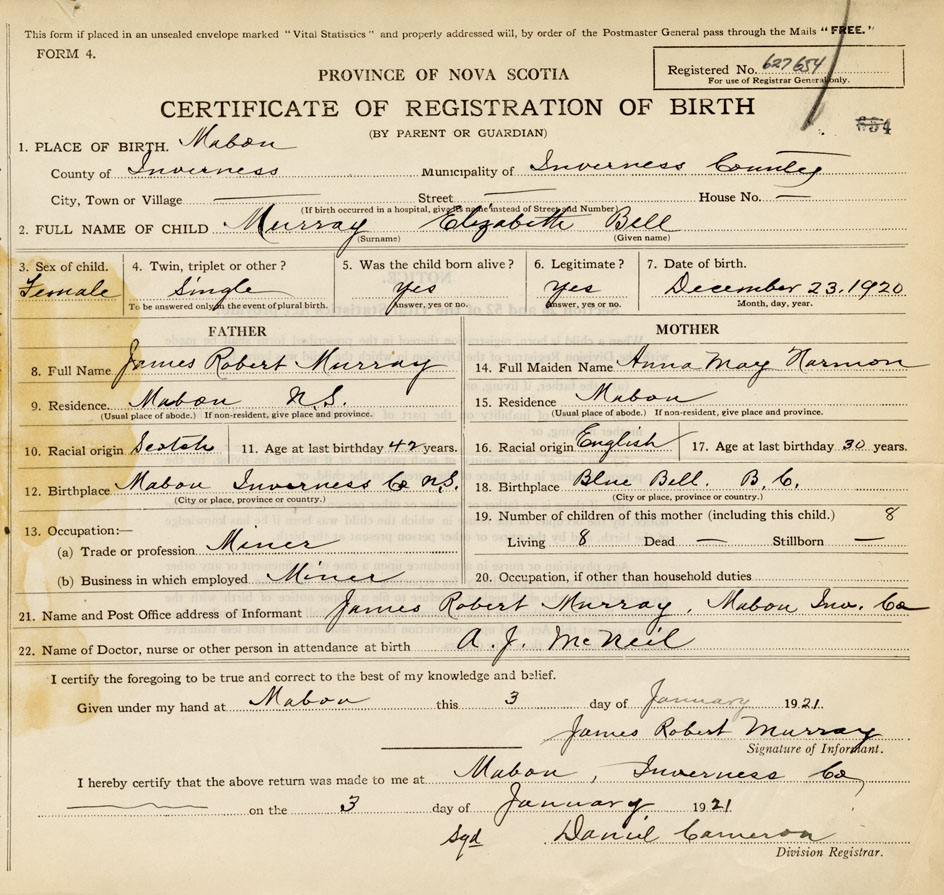 This form if placed in an unsealed envelope marked "Vital Statistics" and properly addressed will, by order of the Postmaster General pass through the Mails "FREE."
FORM 4.
PROVINCE OF NOVA SCOTIA
Registered No. 627654
For use of Registrar General only.
CERTIFICATE OF REGISTRATION OF BIRTH
(BY PARENT OR GUARDIAN)
654
1. PLACE OF BIRTH. Mabou
County of Inverness Municipality of Inverness County
City, Town or Village — Street — House No. —
(If birth occurred in a hospital, give its name instead of Street and Number)
2. FULL NAME OF CHILD Murray Elizabeth Bell
(Surname) (Given name)
3. Sex of child. 4. Twin, triplet or other? 5. Was the child born alive? 6. Legitimate? 7. Date of birth.
Female Single yes yes December 23, 1920
To be answered only in the event of plural birth. Answer, yes or no. Answer, yes or no. Month, day, year.
FATHER MOTHER
8. Full Name James Robert Murray 14. Full Maiden Name Anna May Harmon
9. Residence. Mabou N.S. 15. Residence Mabou
(Usual place of abode.) If non-resident, give place and province. (Usual place of abode.) If non-resident, give place and province.
10. Racial origin Scotch 11. Age at last birthday 42 years. 16. Racial origin English 17. Age at last birthday 30 years.
12. Birthplace Mabou Inverness Co N.S. 18. Birthplace Blue Bell. B.C.
(City or place, province or country.) (City or place, province or country.)
13. Occupation:— 19. Number of children of this mother (including this child.) 8
(a) Trade or profession Miner Living 8 Dead — Stillborn —
(b) Business in which employed Miner 20. Occupation, if other than household duties
21. Name and Post Office address of Informant James Robert Murray, Mabou Inv. Co
22. Name of Doctor, nurse or other person in attendance at birth A. J. McNeil
I certify the foregoing to be true and correct to the best of my knowledge and belief.
Given under my hand at Mabou this 3 day of January 1921.
James Robert Murray
Signature of Informant.
I hereby certify that the above return was made to me at Mabou, Inverness Co,
on the 3 day of January 1921
Sgd Daniel Cameron
Division Registrar.